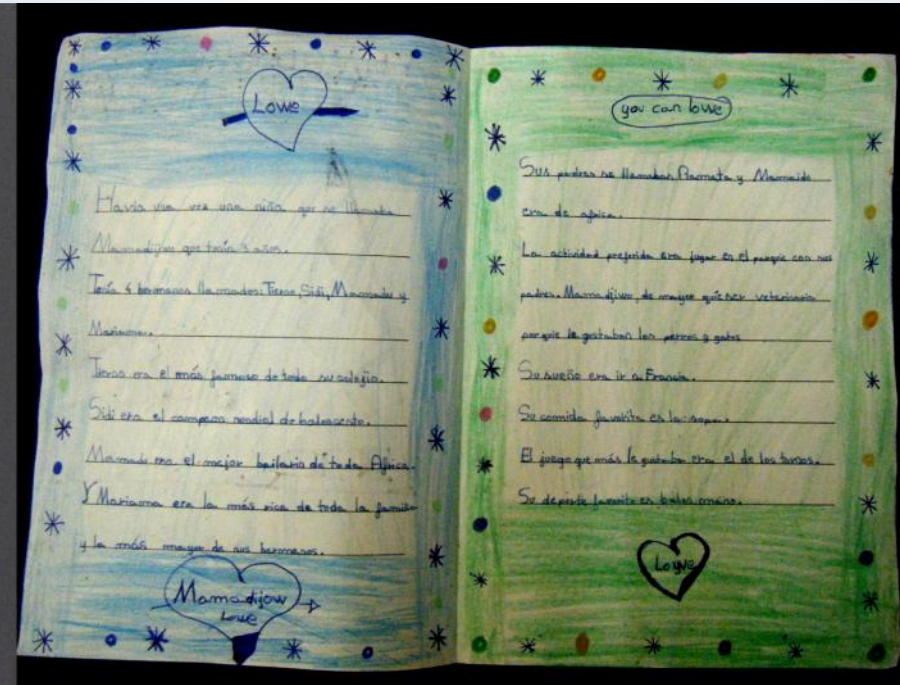 Lowe
Havia una vez una niña que se llamaba
Mamadijow que tenía 3 años.
Tenía 4 hermanos llamados: Tierno, Sidi, Mamadu y
Mariama.
era el más famoso de todo su colegio.
Sidi era el campeon mundial de baloncesto.
Mamadu era el mejor bailarin de toda Africa.
Y Mariama era la más rica de toda la familia
y la más mayor de sus hermanos.
Mamadijow
Lowe
you can lowe
Sus padres se llamaban Ramata y
era de africa.
La actividad preferida era jugar en el parque con sus
padres. Mamadijow, de mayor quiere ser veterinaria
porque le gustaban los perros y gatos
Su sueño era ir a Francia.
Su comida favorita es la sopa.
El juego que más le gustaba era el de los
Su deporte favorito es balon mano.